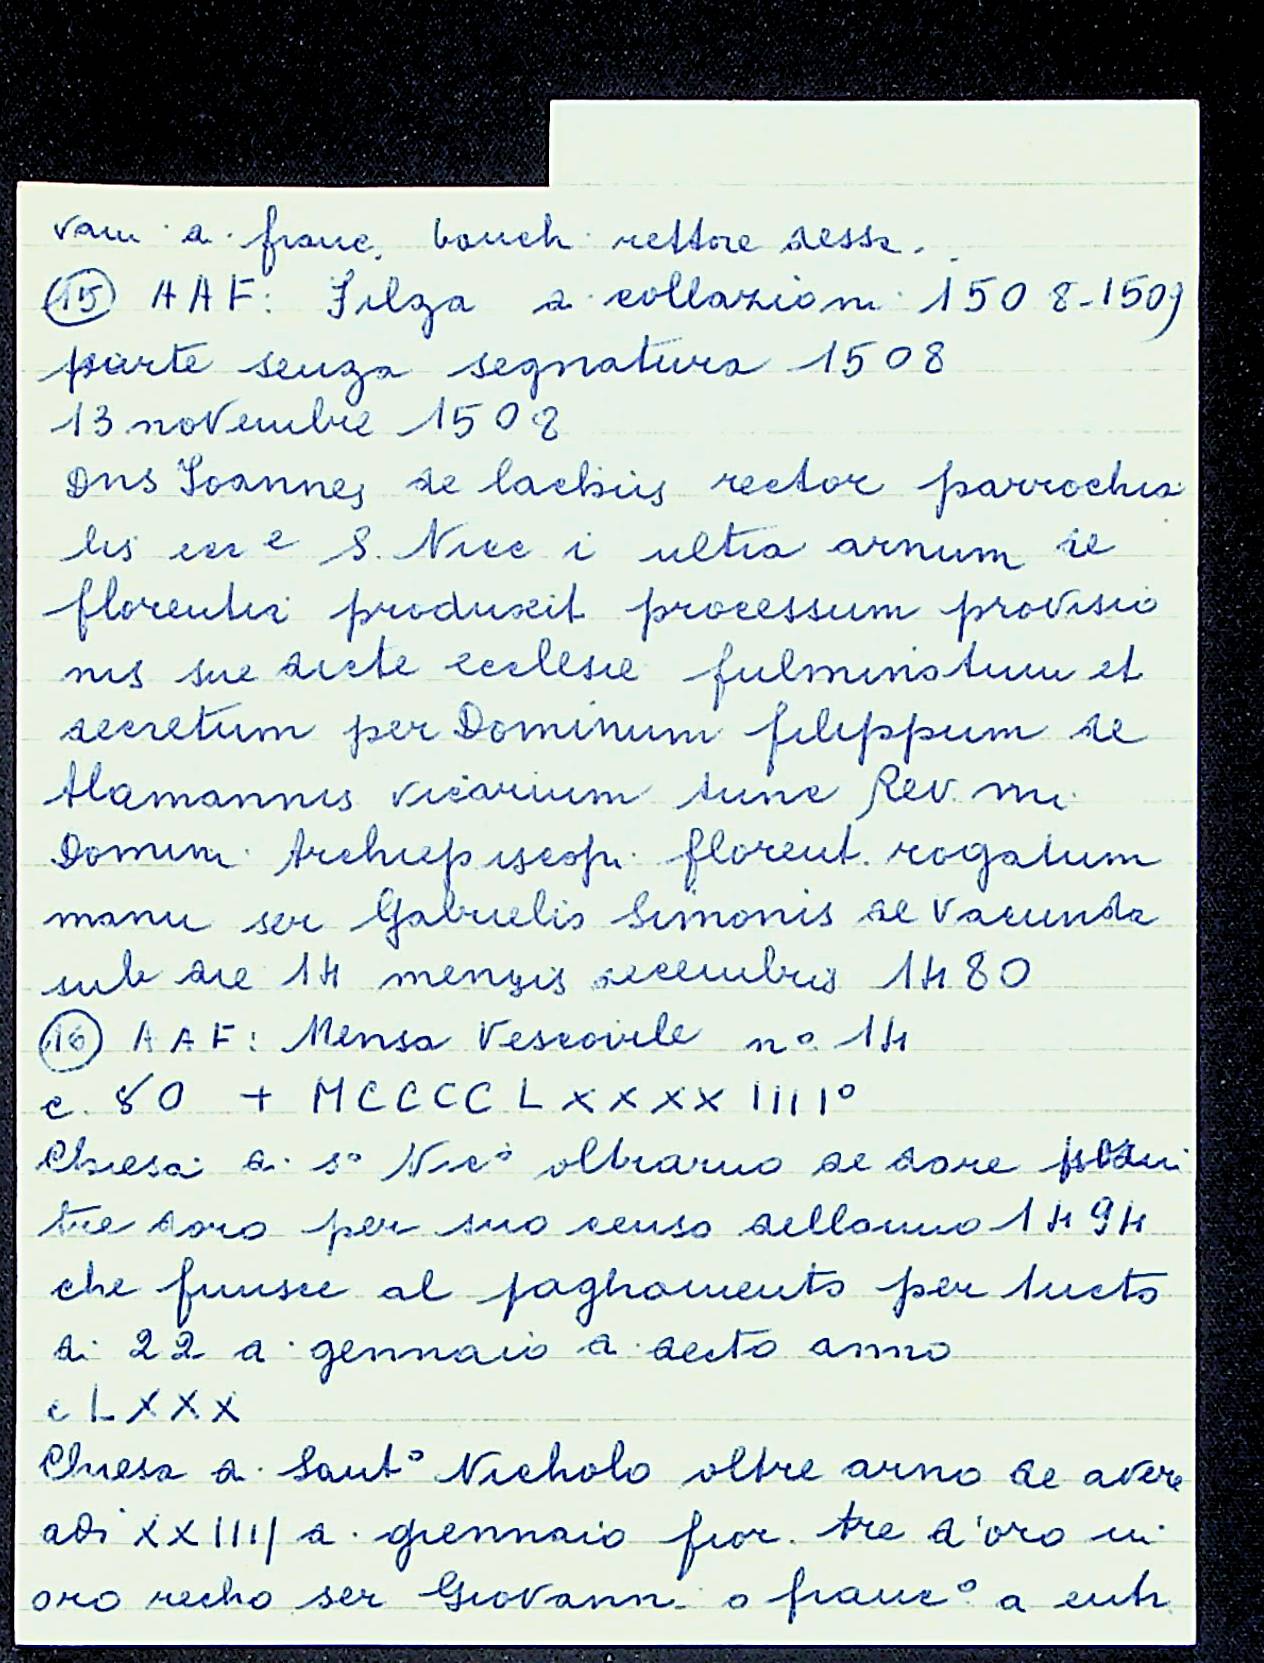 vani di franc. bonch rettore dessa.
(15) AAF: Filza di collazioni 1508-1509
parte senza segnatura 1508
13 novembre 1508
Dns Ioannes de lachiis rector parrochia
lis ecce S. Nicc i ultra arnum de
florentia produxit processum provisio
nis sue dicte ecclesie fulminatum et
decretum per Dominum filippum de
Alamannis vicarium tunc Rev.mi
Domini Archiepiscopi florent. rogatum
manu ser Gabrielis Simonis de Vacunda
sub die 14 mensis decembris 1480
(16) AAF: Mensa Vescovile n° 14
c. 80 + MCCCCLXXXXIIII°
Chiesa di S° Nic° oltrarno de dare
tre doro per suo censo dellanno 1494
che funsce al paghamento per tucto
di 22 di gennaio di decto anno
c LXXX
Chiesa di Sant° Nicholo oltre arno de avere
adi XXIIII di giennaio fior. tre d'oro in
oro recho ser Giovanni o franc° a entr